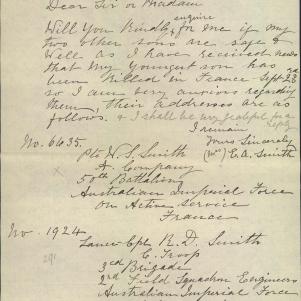 Dear Sir or Madam
enquire
Will You Kindly for me if my
two other sons are safe &
Well as I have received news
that My Youngest son has
been Killed in France Sept 23rd
so I am very anxious regarding
them, Their addresses are as
follows. & I shall be very grateful for a
reply
I remain
Yours Sincerely
(Mrs) E. A. Smith
No. 6435.
Pte W. S. Smith
A. Company
50th Battalion
Australian Imperial Force
On Active Service
France
No. 1924
Lance Cpl R. D. Smith
C. Troop
3rd Brigade
2nd Field Squadron Engineers
Australian Imperial Force